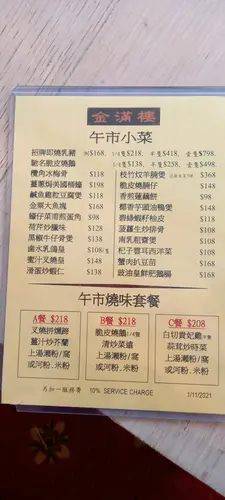 金滿樓
午市小菜
招牌即燒乳豬 $168. 1/4隻$218. 半隻$418. 全隻$798.
馳名脆皮燒鵝 1/4隻$138. 半隻$258. 全隻$498.
欖角冰梅骨 $118
薑蔥焗美國桶蠔 $198
鹹魚雞粒豆腐煲 $108
金粟大魚塊 $168
蠔仔菜甫煎蛋角 $98
荷芹炒臘味 $128
黑椒牛仔骨煲 $138
鹵水乳鴿皇 $108/隻
蜜汁叉燒皇 $138
滑蛋炒蝦仁 $138
枝竹炆羊腩煲 $368
脆皮燒腩仔 $148
香煎蓮藕餅 $98
椰香芋頭油鴨煲 $148
碧綠蝦籽柚皮 $118
菠蘿生炒排骨 $118
南乳粗齋煲 $108
杞子雲耳西洋菜 $108
蟹肉扒豆苗 $168
豉油皇鮮肥鵝腸 $168
午市燒味套餐
A餐 $218
叉燒拼燻蹄
薑汁炒芥蘭
上湯瀨粉/窩
或河粉、米粉
B餐 $218
脆皮燒鵝/1/4隻
清炒菜遠
上湯瀨粉/窩
或河粉、米粉
C餐 $208
白切貴妃雞/半隻
蒜茸炒時菜
上湯瀨粉/窩
或河粉、米粉
另加一服務費 10% SERVICE CHARGE 1/11/2021